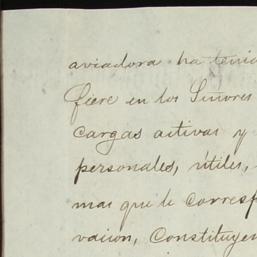 aviadora ha tenid
fiere en los Señores
cargas activas y
personales, útiles,
mas que le corresp
vacion, Constituyen